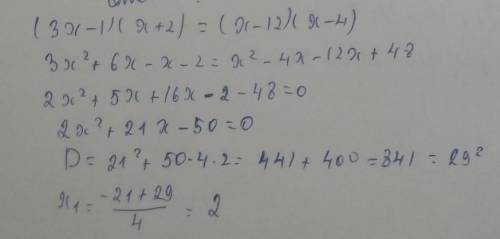 (3x-1)(x+2) = (x-12)(x-4)
3x² + 6x - x - 2 = x² - 4x - 12x + 48
2x² + 5x + 16x - 2 - 48 = 0
2x² + 21x - 50 = 0
D = 21² + 50·4·2 = 441 + 400 = 841 = 29²
x₁ = (-21+29)/4 = 2